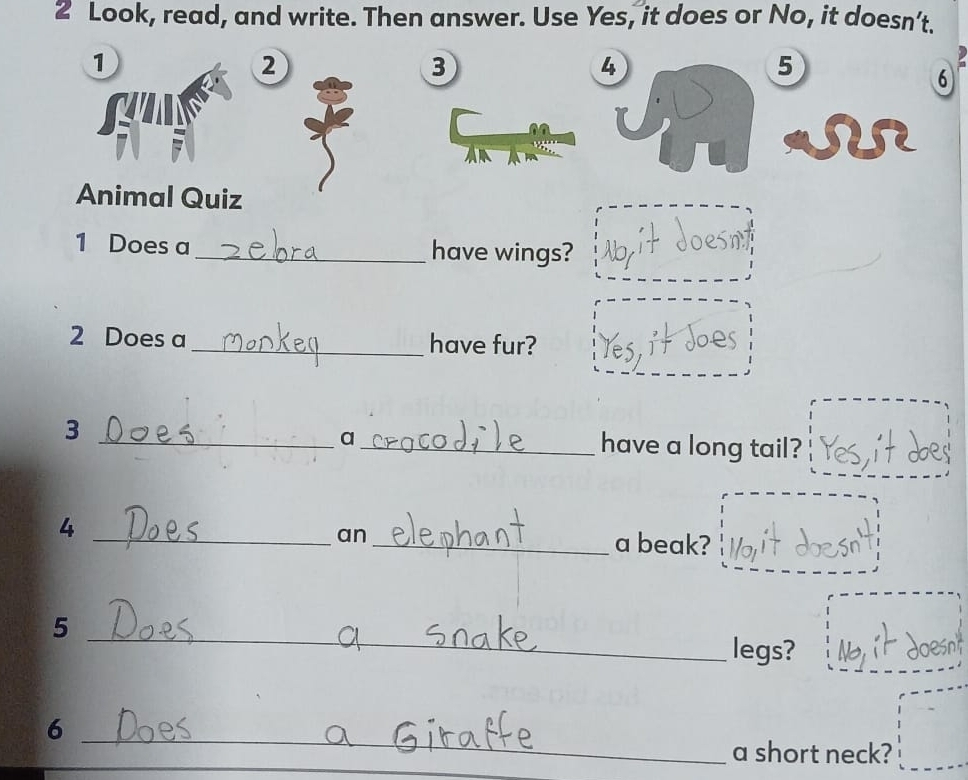 2 Look, read, and write. Then answer. Use Yes, it does or No, it doesn't.
1 2 3 4 5 6
Animal Quiz
1 Does a zebra have wings? No, it doesn't
2 Does a monkey have fur? Yes, it does
3 Does a crocodile have a long tail? Yes, it does
4 Does an elephant a beak? No, it doesn't
5 Does a snake legs? No, it doesn't
6 Does a Giraffe a short neck?